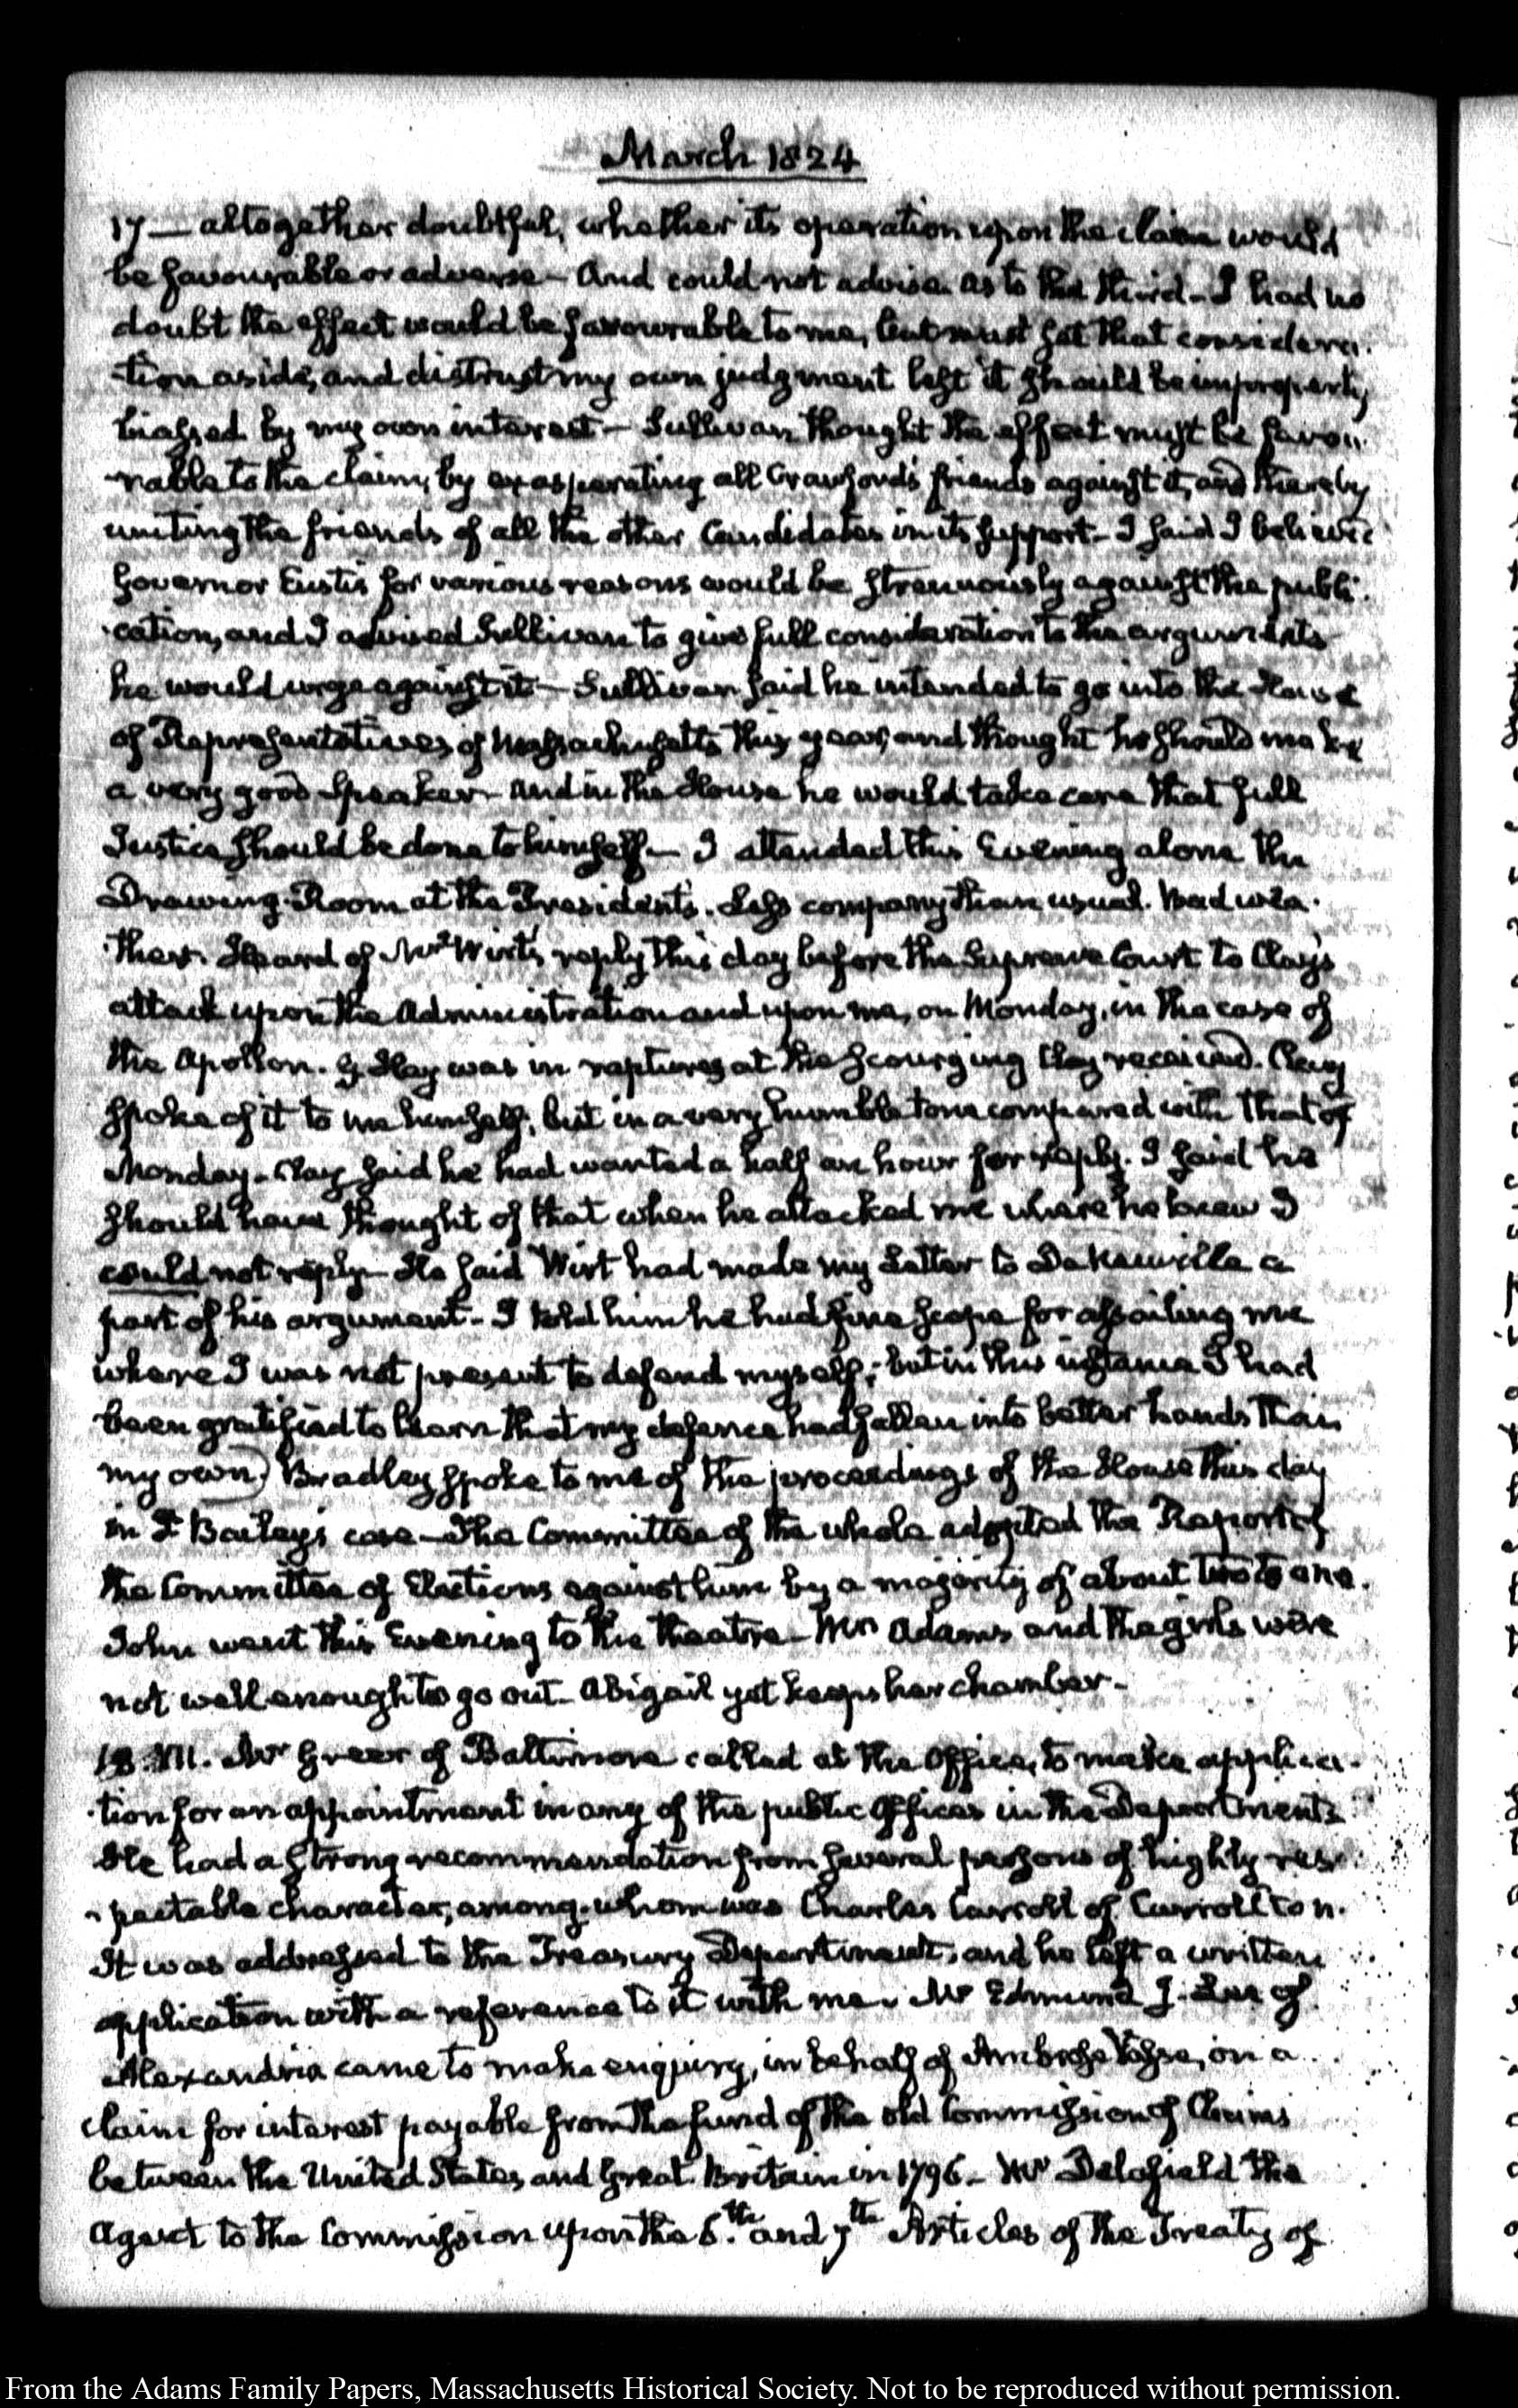 March 1824
17 — altogether doubtful, whether its operation upon the claim would
be favourable or adverse — And could not advise. As to the third — I had no
doubt the effect would be favourable to me, but must set that considera-
-tion aside, and distrust my own judgment lest it should be improperly
biassed by my own interest — Sullivan thought the effect must be favou-
-rable to the claim, by exasperating all Crawford's friends against it, and thereby
uniting the friends of all the other Candidates in its support — I said I believed
Governor Eustis for various reasons would be strenuously against the publi-
-cation, and I advised Sullivan to give full consideration to the arguments
he would urge against it — Sullivan said he intended to go into the House
of Representatives of Massachusetts this year, and thought he should make
a very good Speaker — And in the House he would take care that full
Justice should be done to himself — I attended this Evening alone the
Drawing-Room at the President's. Less company than usual. Bad wea-
-ther. Heard of Mr. Wirt's reply this day before the Supreme Court to Clay's
attack upon the Administration and upon me, on Monday, in the case of
the Apollon. G. Hay was in raptures at the scourging Clay received. Clay
spoke of it to me himself; but in a very humble tone compared with that of
Monday — Clay said he had wanted a half an hour for reply. I said he
should have thought of that when he attacked me where he knew I
could not reply — He said Wirt had made my Letter to De Neuville a
part of his argument — I told him he had fine scope for assailing me
where I was not present to defend myself; but in this instance I had
been gratified to learn that my defence had fallen into better hands than
my own.) Bradley spoke to me of the proceedings of the House this day
in J. Bailey's case — The Committee of the whole adopted the Report of
the Committee of Elections against him by a majority of about two to one.
John went this Evening to the theatre — Mrs Adams and the girls were
not well enough to go out — Abigail yet keeps her chamber —
18. VII. Mr Greer of Baltimore called at the Office, to make applica-
-tion for an appointment in any of the public Offices in the Departments
He had a strong recommendation from several persons of highly res-
-pectable character, among whom was Charles Carroll of Carrollton.
It was addressed to the Treasury Department, and he left a written
application with a reference to it with me. Mr Edmund J. Lee of
Alexandria came to make enquiry, in behalf of Ambrose Vasse, on a
claim for interest payable from the fund of the old Commission of Claims
between the United States and Great Britain in 1796 — Mr Delafield the
Agent to the Commission upon the 6.th and 7th Articles of the Treaty of
From the Adams Family Papers, Massachusetts Historical Society. Not to be reproduced without permission.